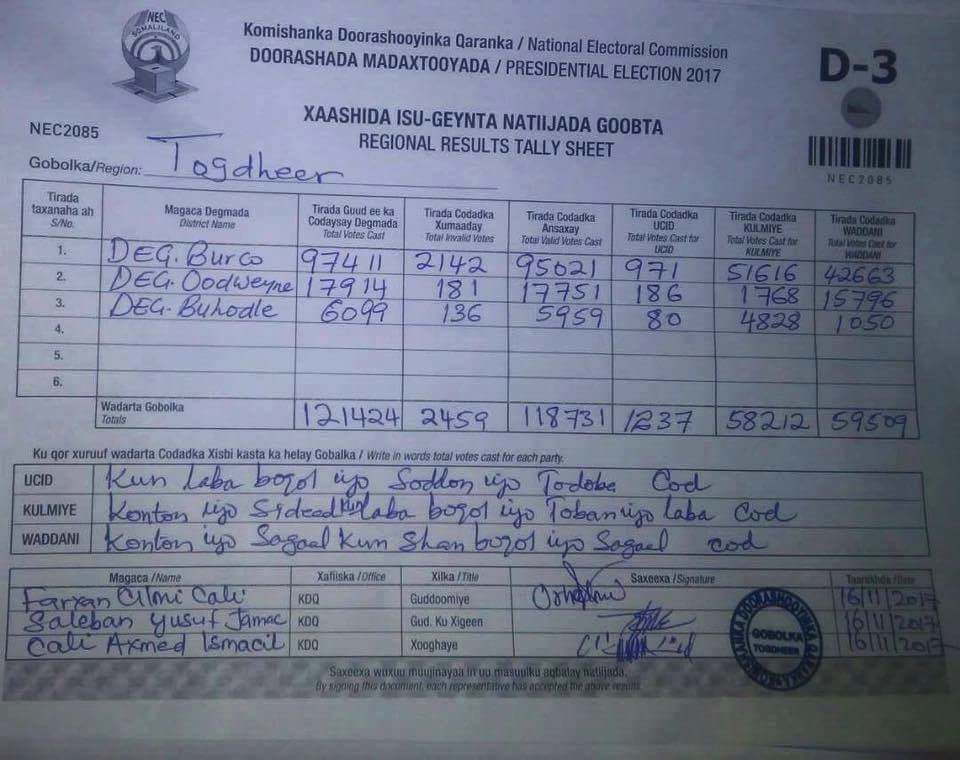 NEC
SOMALILAND
Komishanka Doorashooyinka Qaranka / National Electoral Commission
DOORASHADA MADAXTOOYADA / PRESIDENTIAL ELECTION 2017
D-3
XAASHIDA ISU-GEYNTA NATIIJADA GOOBTA
REGIONAL RESULTS TALLY SHEET
NEC2085
NEC2085
Gobolka/Region: Togdheer
Tirada taxanaha ah S/No. Magaca Degmada District Name Tirada Guud ee ka Codaysay Degmada Total Votes Cast Tirada Codadka Xumaaday Total Invalid Votes Tirada Codadka Ansaxay Total Valid Votes Cast Tirada Codadka UCID Total Votes Cast for UCID Tirada Codadka KULMIYE Total Votes Cast for KULMIYE Tirada Codadka WADDANI Total Votes Cast for WADDANI
1. DEG. Burco 97411 2142 95021 971 51616 42663
2. DEG. Oodweyne 17914 181 17751 186 1768 15796
3. DEG. Buhodle 6099 136 5959 80 4828 1050
4.
5.
6.
Wadarta Gobolka Totals 121424 2459 118731 1237 58212 59509
Ku qor xuruuf wadarta Codadka Xisbi kasta ka helay Gobalka / Write in words total votes cast for each party.
UCID Kun Laba boqol iyo Soddon iyo Todoba Cod
KULMIYE Konton iyo Sideed kun laba boqol iyo Toban iyo laba cod
WADDANI Konton iyo Sagaal Kun Shan boqol iyo Sagaal cod
Magaca /Name Xafiiska /Office Xilka /Title Saxeexa /Signature Taariikhda /Date
Farxan Cilmi Cali KDQ Guddoomiye 16/11/2017
Saleban Yusuf Jamac KDQ Gud. Ku Xigeen 16/11/2017
Cali Axmed Ismacil KDQ Xooghaye 16/11/2017
GOBOLKA
TOGDHEER
Saxeexa wuxuu muujinayaa in uu masuulku aqbalay natiijada.
By signing this document, each representative has accepted the above results.